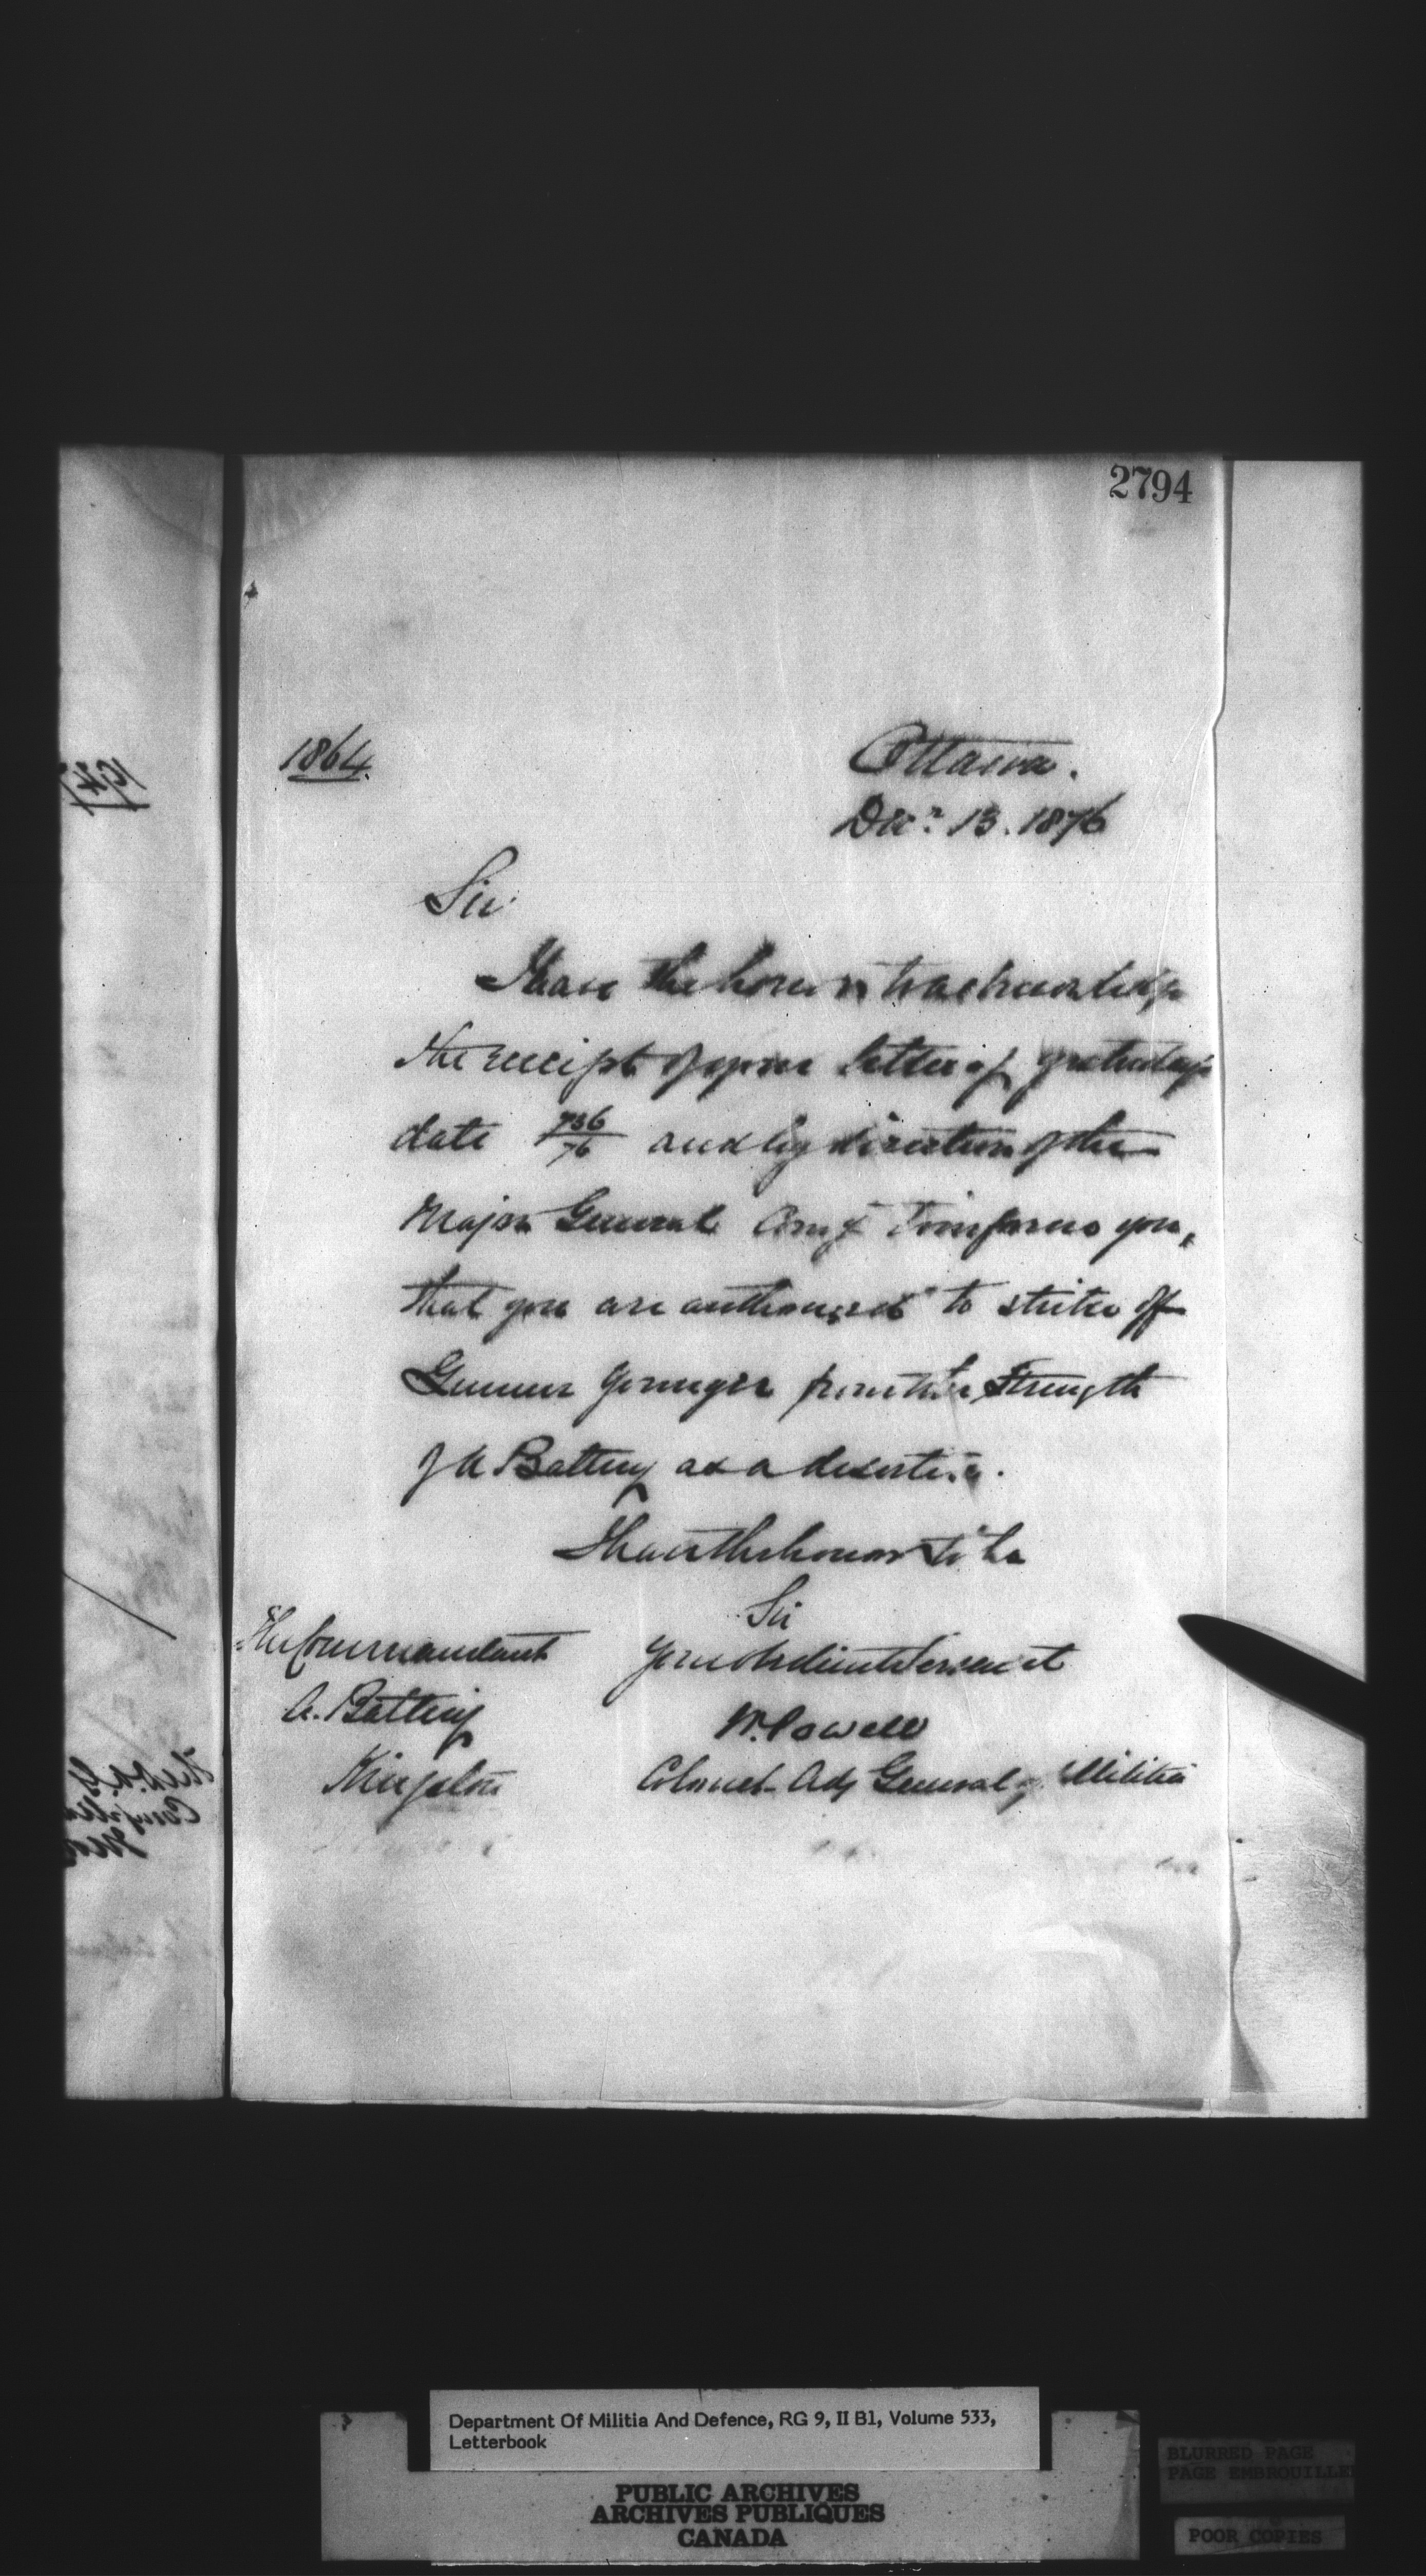 2794
1864.
Ottawa.
Decr. 13. 1876
Sir
I have the honor to acknowledge
the receipt of your letter of yesterday's
date 736/76 and by direction of the
Major General Comg to inform you,
that you are authorized to strike off
Gunner Younger from the strength
of A Battery as a deserter.
I have the honor to be
Sir
Your obedient servant
W. Powell
Colonel Adj General of Militia
The Commandant
A. Battery
Kingston
Department Of Militia And Defence, RG 9, II B1, Volume 533,
Letterbook
PUBLIC ARCHIVES
ARCHIVES PUBLIQUES
CANADA
BLURRED PAGE
PAGE EMBROUILLE
POOR COPIES